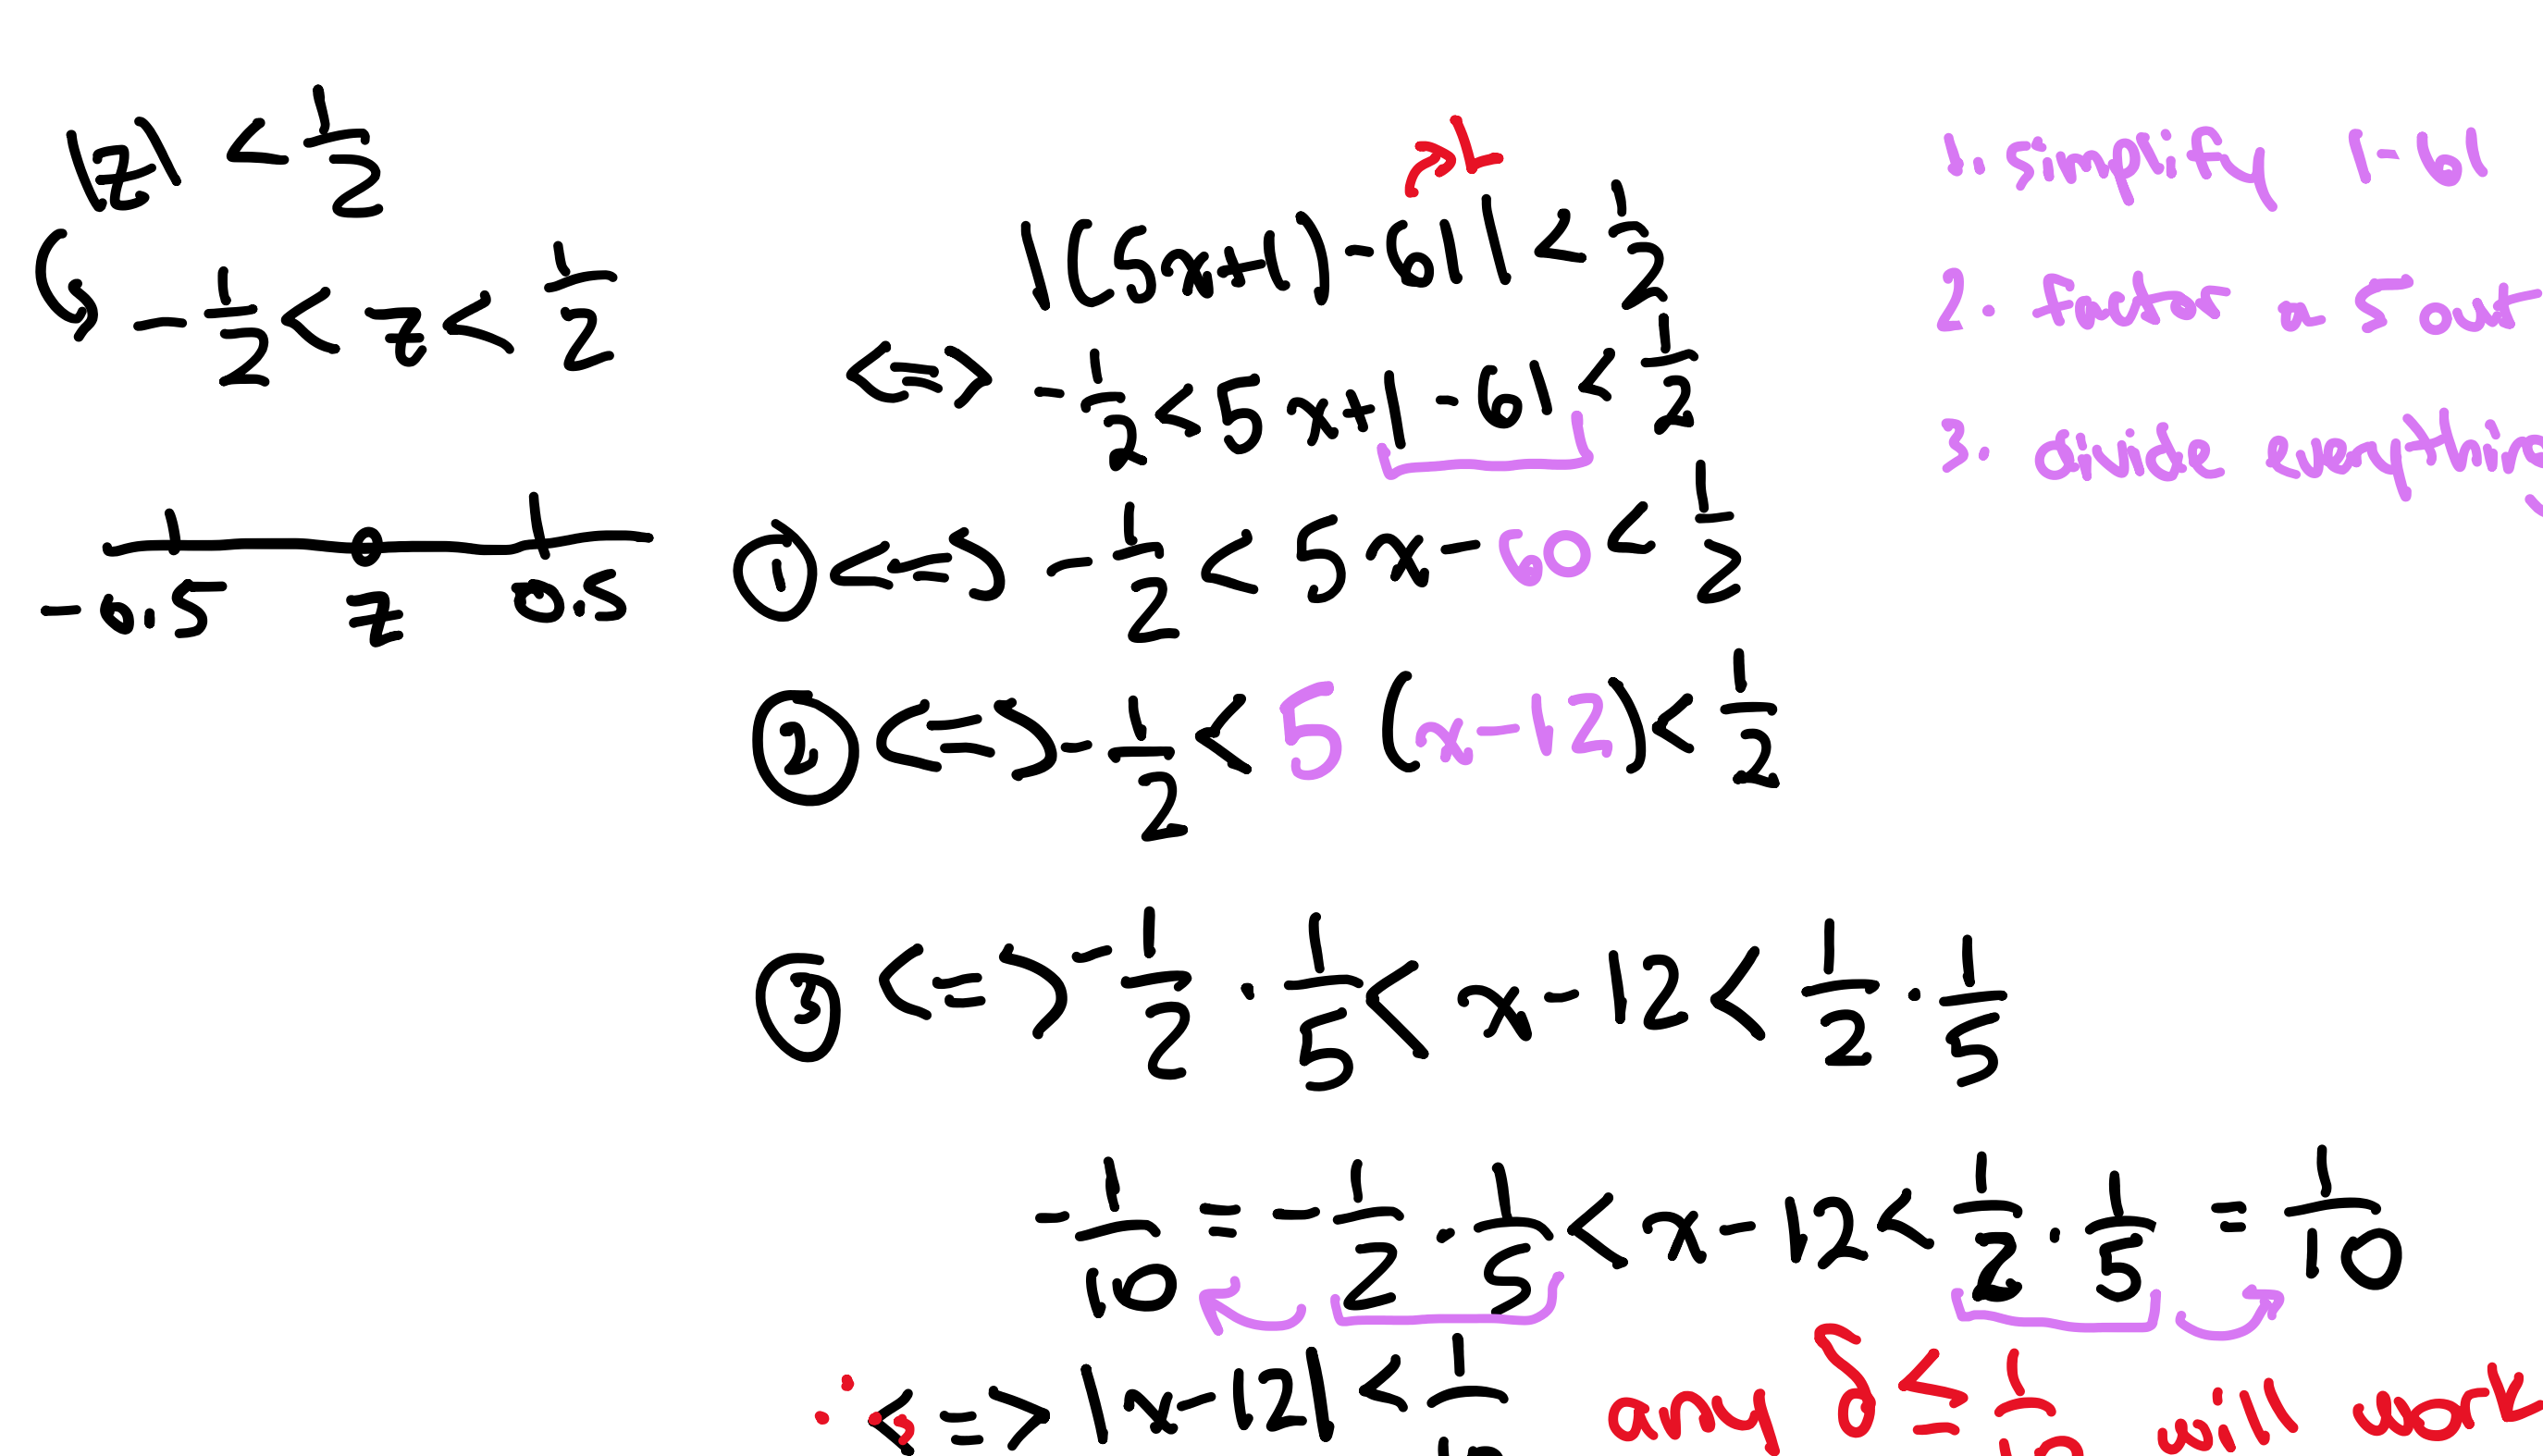 |z| < 1/2
- 1/2 < z < 1/2
-0.5 z 0.5
→ L
|(5x+1) - 61| < 1/2
<=> - 1/2 < 5x+1 - 61 < 1/2
① <=> - 1/2 < 5x - 60 < 1/2
② <=> - 1/2 < 5(x-12) < 1/2
③ <=> - 1/2 · 1/5 < x - 12 < 1/2 · 1/5
- 1/10 = - 1/2 · 1/5 < x - 12 < 1/2 · 1/5 = 1/10
<=> |x-12| < 1/10 any δ ≤ 1/10 will work
1. simplify 1-61
2. factor a 5 out
3. divide everything